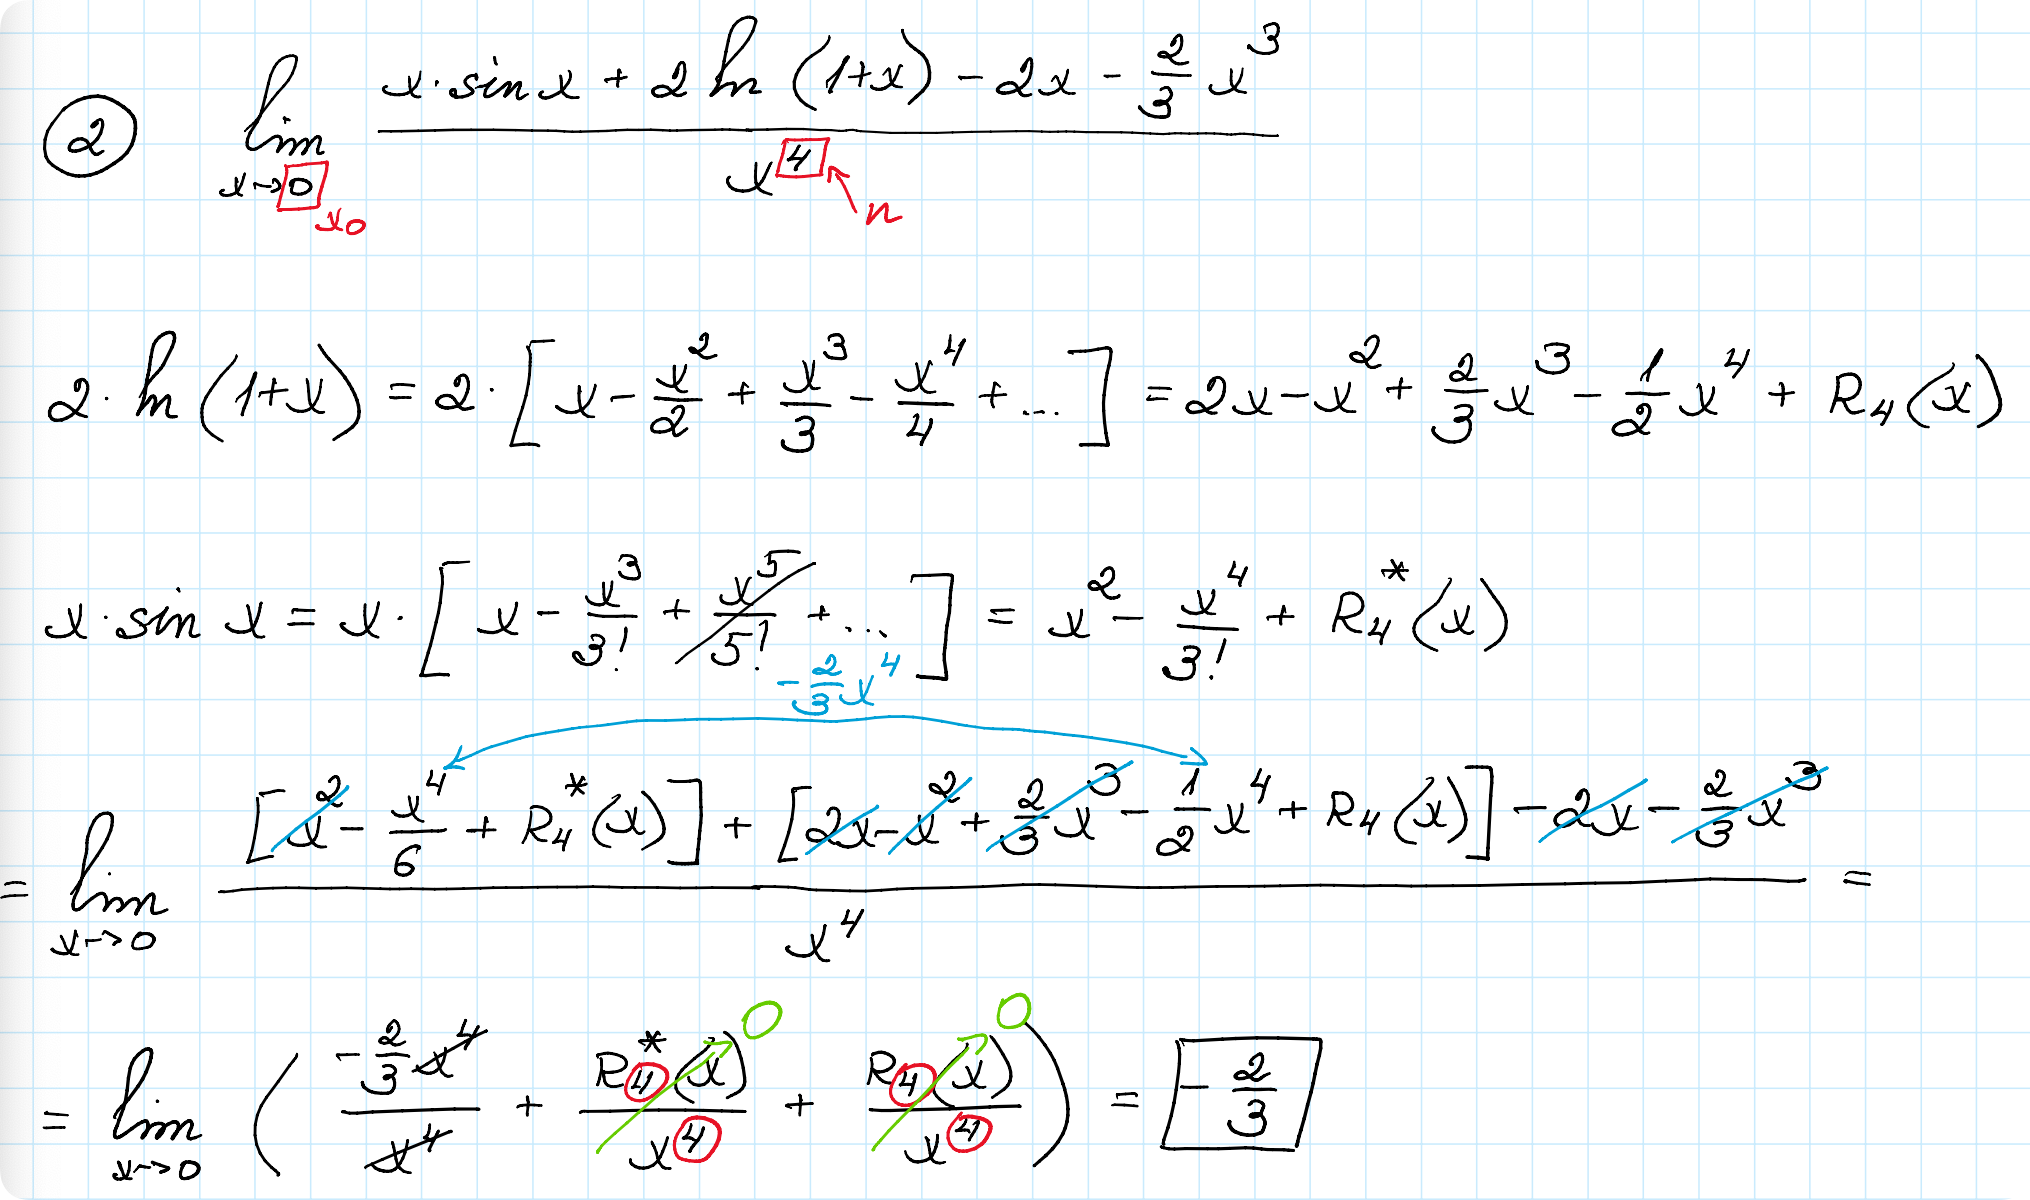 ② lim x→0 (x·sin x + 2 ln (1+x) − 2x − 2/3 x³) / x⁴
x₀ n
2·ln (1+x) = 2·[x − x²/2 + x³/3 − x⁴/4 + ...] = 2x − x² + 2/3 x³ − 1/2 x⁴ + R₄(x)
x·sin x = x·[x − x³/3! + x⁵/5! + ...] = x² − x⁴/3! + R₄*(x)
−2/3 x⁴
= lim x→0 ([x² − x⁴/6 + R₄*(x)] + [2x − x² + 2/3 x³ − 1/2 x⁴ + R₄(x)] − 2x − 2/3 x³) / x⁴ =
0 0
= lim x→0 ( (−2/3 x⁴)/x⁴ + R₄*(x)/x⁴ + R₄(x)/x⁴ ) = −2/3